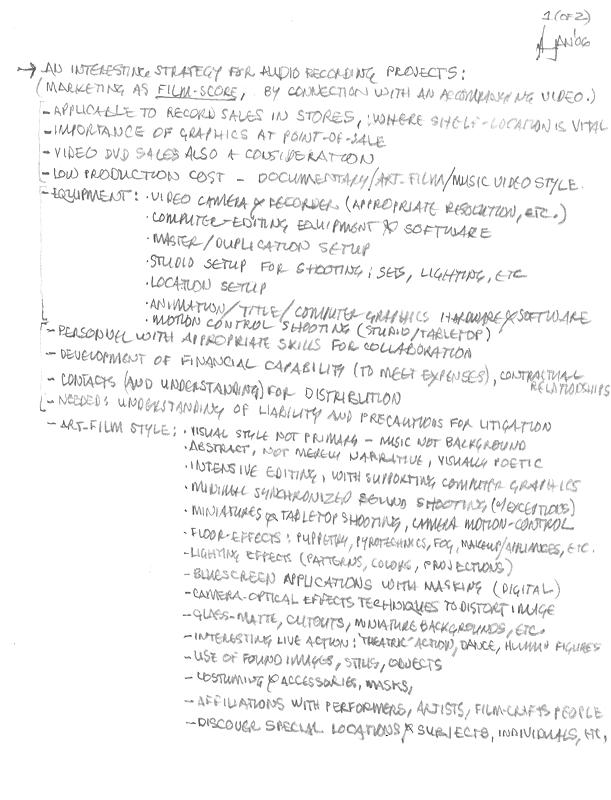 1 (OF 2)
JAN '06
→ AN INTERESTING STRATEGY FOR AUDIO RECORDING PROJECTS:
(MARKETING AS FILM-SCORE, BY CONNECTION WITH AN ACCOMPANYING VIDEO.)
- APPLICABLE TO RECORD SALES IN STORES, WHERE SHELF-LOCATION IS VITAL
- IMPORTANCE OF GRAPHICS AT POINT-OF-SALE
- VIDEO DVD SALES ALSO A CONSIDERATION
- LOW PRODUCTION COST - DOCUMENTARY/ART-FILM/MUSIC VIDEO STYLE.
- EQUIPMENT: · VIDEO CAMERA & RECORDER (APPROPRIATE RESOLUTION, ETC.)
· COMPUTER-EDITING EQUIPMENT & SOFTWARE
· MASTER/DUPLICATION SETUP
· STUDIO SETUP FOR SHOOTING; SETS, LIGHTING, ETC
· LOCATION SETUP
· ANIMATION/TITLE/COMPUTER GRAPHICS HARDWARE & SOFTWARE
· MOTION CONTROL SHOOTING (STUDIO/TABLETOP)
- PERSONNEL WITH APPROPRIATE SKILLS FOR COLLABORATION
- DEVELOPMENT OF FINANCIAL CAPABILITY (TO MEET EXPENSES), CONTRACTUAL RELATIONSHIPS
- CONTACTS (AND UNDERSTANDING) FOR DISTRIBUTION
- NEEDED: UNDERSTANDING OF LIABILITY AND PRECAUTIONS FOR LITIGATION
- ART-FILM STYLE: · VISUAL STYLE NOT PRIMARY - MUSIC NOT BACKGROUND
· ABSTRACT, NOT MERELY NARRATIVE, VISUALLY POETIC
· INTENSIVE EDITING, WITH SUPPORTING COMPUTER GRAPHICS
· MINIMAL SYNCHRONIZED SOUND SHOOTING (W/EXCEPTIONS)
· MINIATURES & TABLETOP SHOOTING, CAMERA MOTION-CONTROL
· FLOOR-EFFECTS: PUPPETRY, PYROTECHNICS, FOG, MAKEUP/APPLIANCES, ETC.
· LIGHTING EFFECTS (PATTERNS, COLORS, PROJECTIONS)
- BLUESCREEN APPLICATIONS WITH MASKING (DIGITAL)
- CAMERA-OPTICAL EFFECTS TECHNIQUES TO DISTORT IMAGE
- GLASS-MATTE, CUTOUTS, MINIATURE BACKGROUNDS, ETC.
- INTERESTING LIVE ACTION: "THEATRIC" ACTION, DANCE, HUMAN FIGURES
- USE OF FOUND IMAGES, STILLS, OBJECTS
- COSTUMING & ACCESSORIES, MASKS,
- AFFILIATIONS WITH PERFORMERS, ARTISTS, FILM-CRAFTS PEOPLE
- DISCOVER SPECIAL LOCATIONS & SUBJECTS, INDIVIDUALS, ETC,